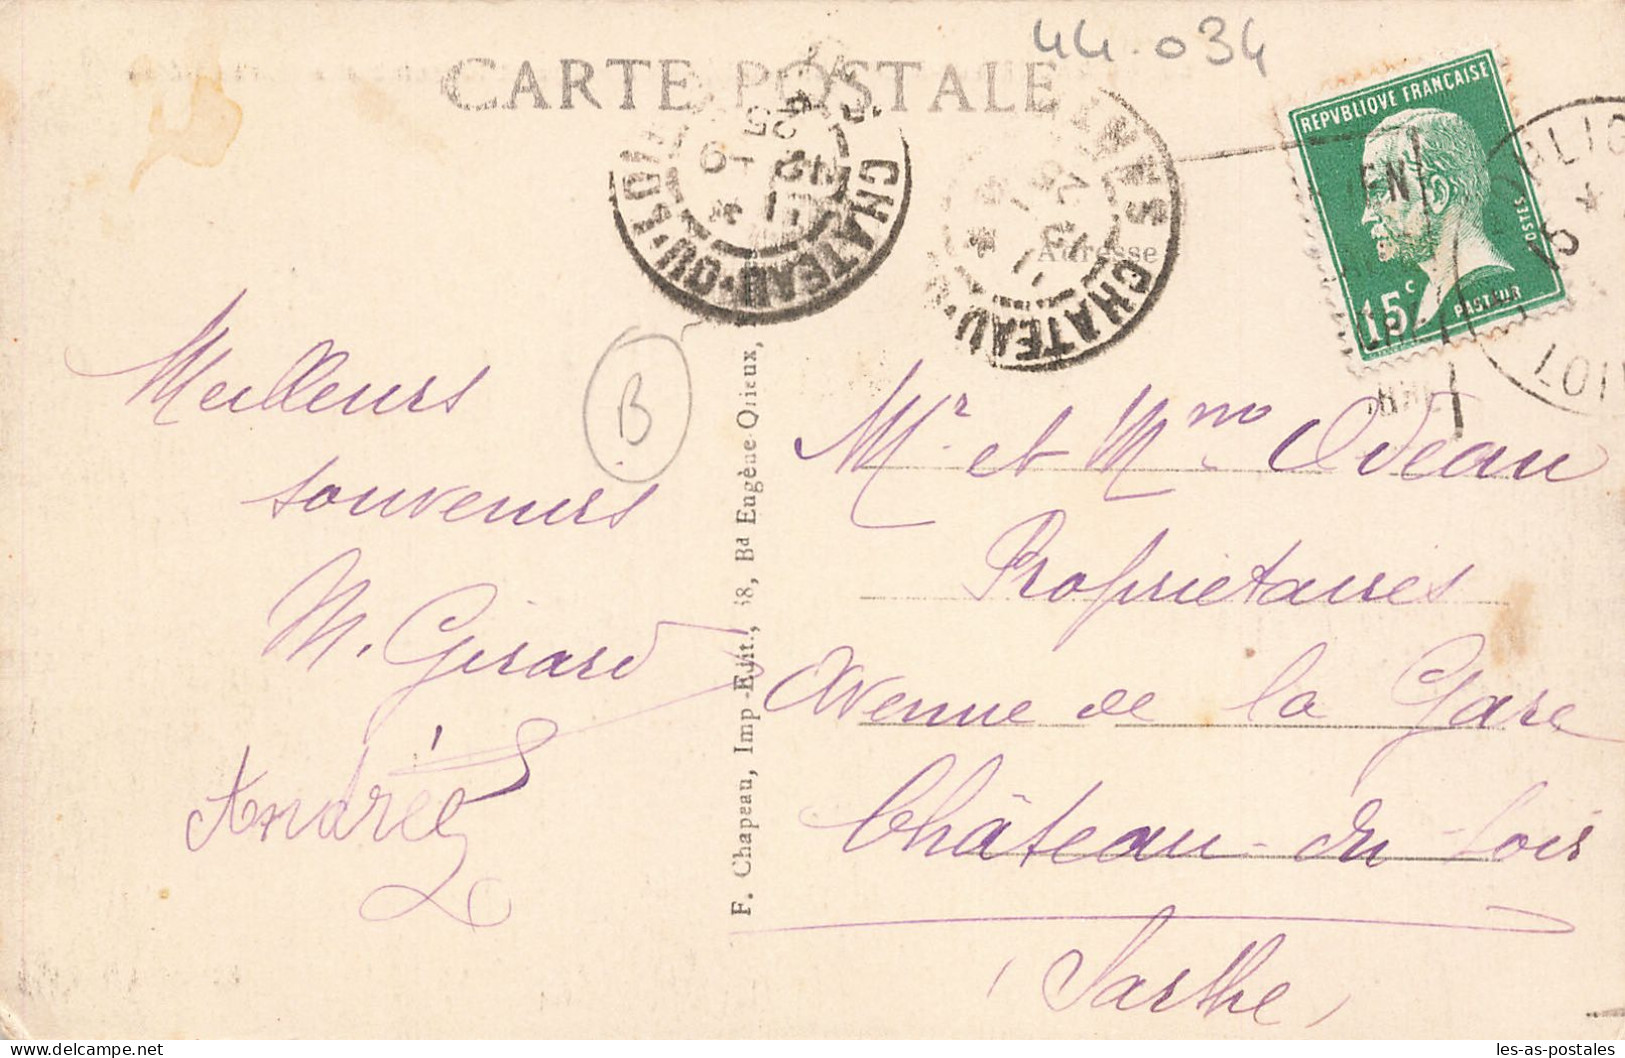 44.034
CARTE POSTALE
REPVBLIQVE FRANÇAISE
POSTES
15c
PASTEUR
CHATEAU-DU-LOIR
CHATEAU-DU
Adresse
EN
Meilleurs
souvenirs
M. Girard
Andrée
B
F. Chapeau, Imp.-Edit., 38, Bd Eugène-Orieux,
Mr et Mme Odeau
Propriétaires
Avenue de la Gare
Château-du-Loir
(Sarthe)
les-as-postales